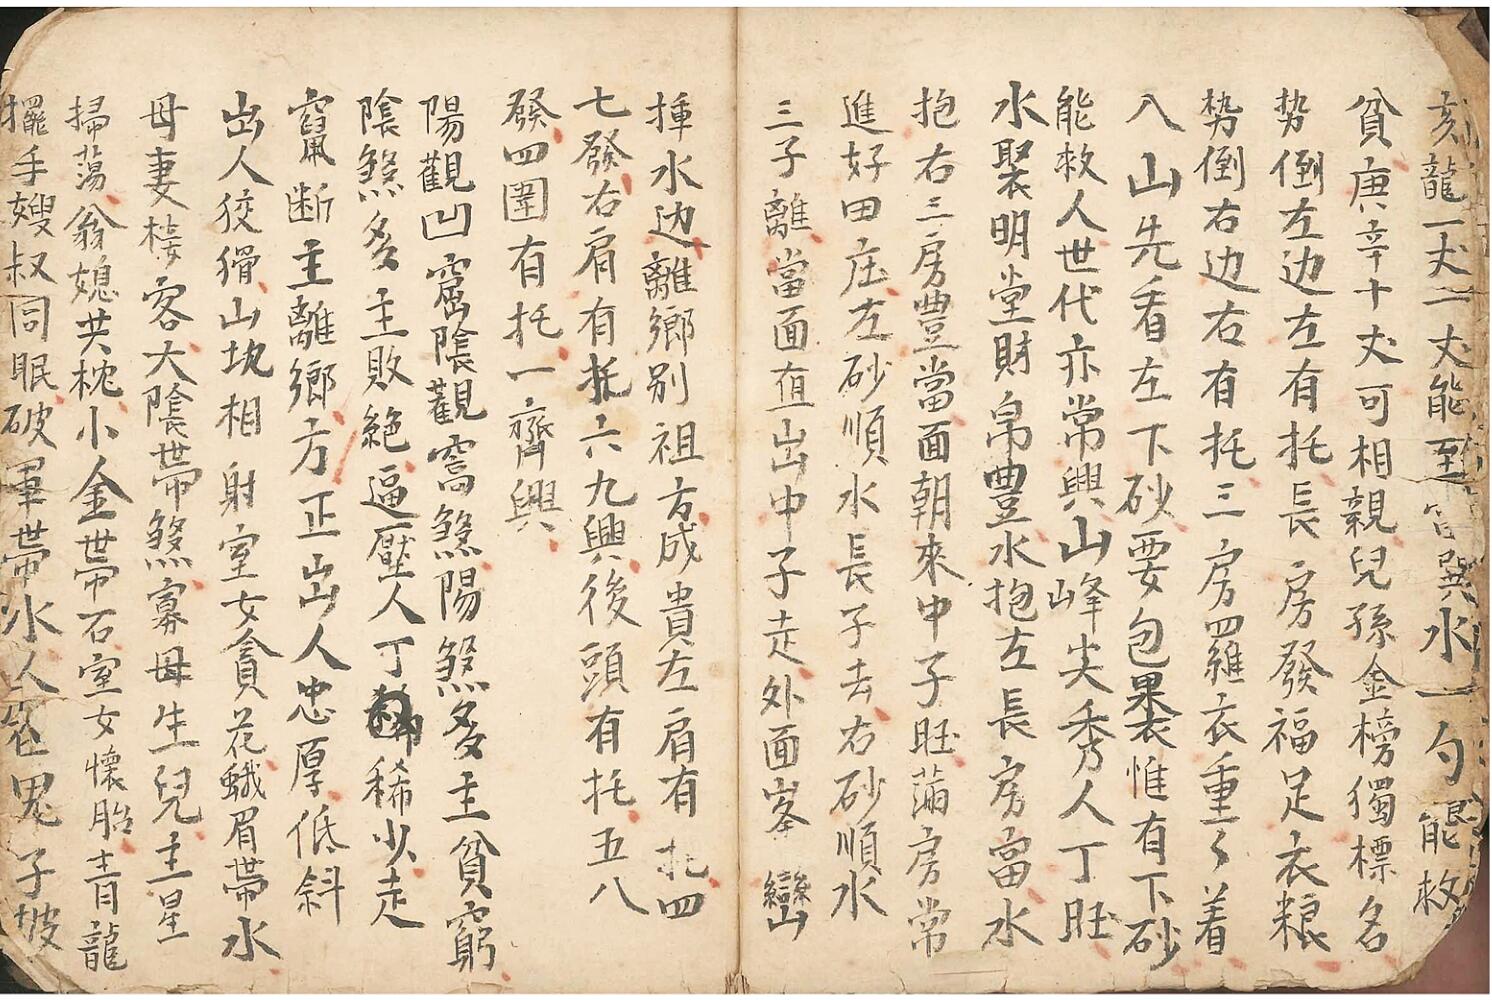 亥龍一丈一丈能至富巽水一勺能救
貧庚辛十丈可相親兒孫金榜獨標名
势倒左边左有托長房發福足衣粮
势倒右边右有托三房羅衣重々着
八山先看左下砂要包裹惟有下砂
能救人世代亦常興山峰尖秀人丁旺
水聚明堂財帛豊水抱左長房當水
抱右三房豊當面朝來中子旺滿房常
進好田庄左砂順水長子去右砂順水
三子離當面直出中子走外面峯巒
捶水边離鄉别祖方成貴左肩有托四
七發右肩有托六九興後頭有托五八
發四圍有托一齊興
陽觀凹窩陰觀窩煞陽煞多主貧窮
陰煞多主敗絶逼壓人丁稀少走
竄断主離鄉方正出人忠厚低斜
出人狡猾山坑相射室女貪花蛾眉帶水
母妻接客大陰帶煞寡母生兒主星
掃蕩翁媳共枕小金帶石室女懷胎青龍
擺手嫂叔同眠破軍帶水人   子坡